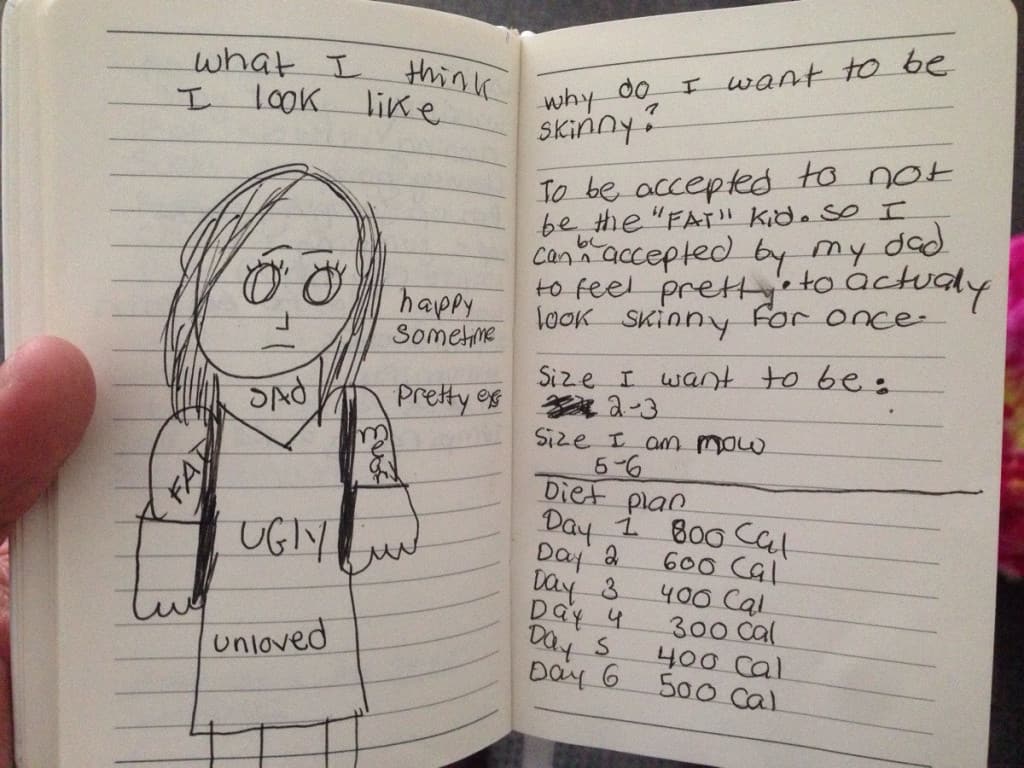 what I think
I look like
happy
sometime
SAD
pretty eye
FAT
mean
UGLY
unloved
why do I want to be
skinny?
To be accepted to not
be the "FAT" kid. so I
can be accepted by my dad
to feel pretty. to actualy
look skinny for once.
Size I want to be:
2-3
Size I am now
5-6
Diet plan
Day 1 800 Cal
Day 2 600 Cal
Day 3 400 Cal
Day 4 300 Cal
Day 5 400 Cal
Day 6 500 Cal